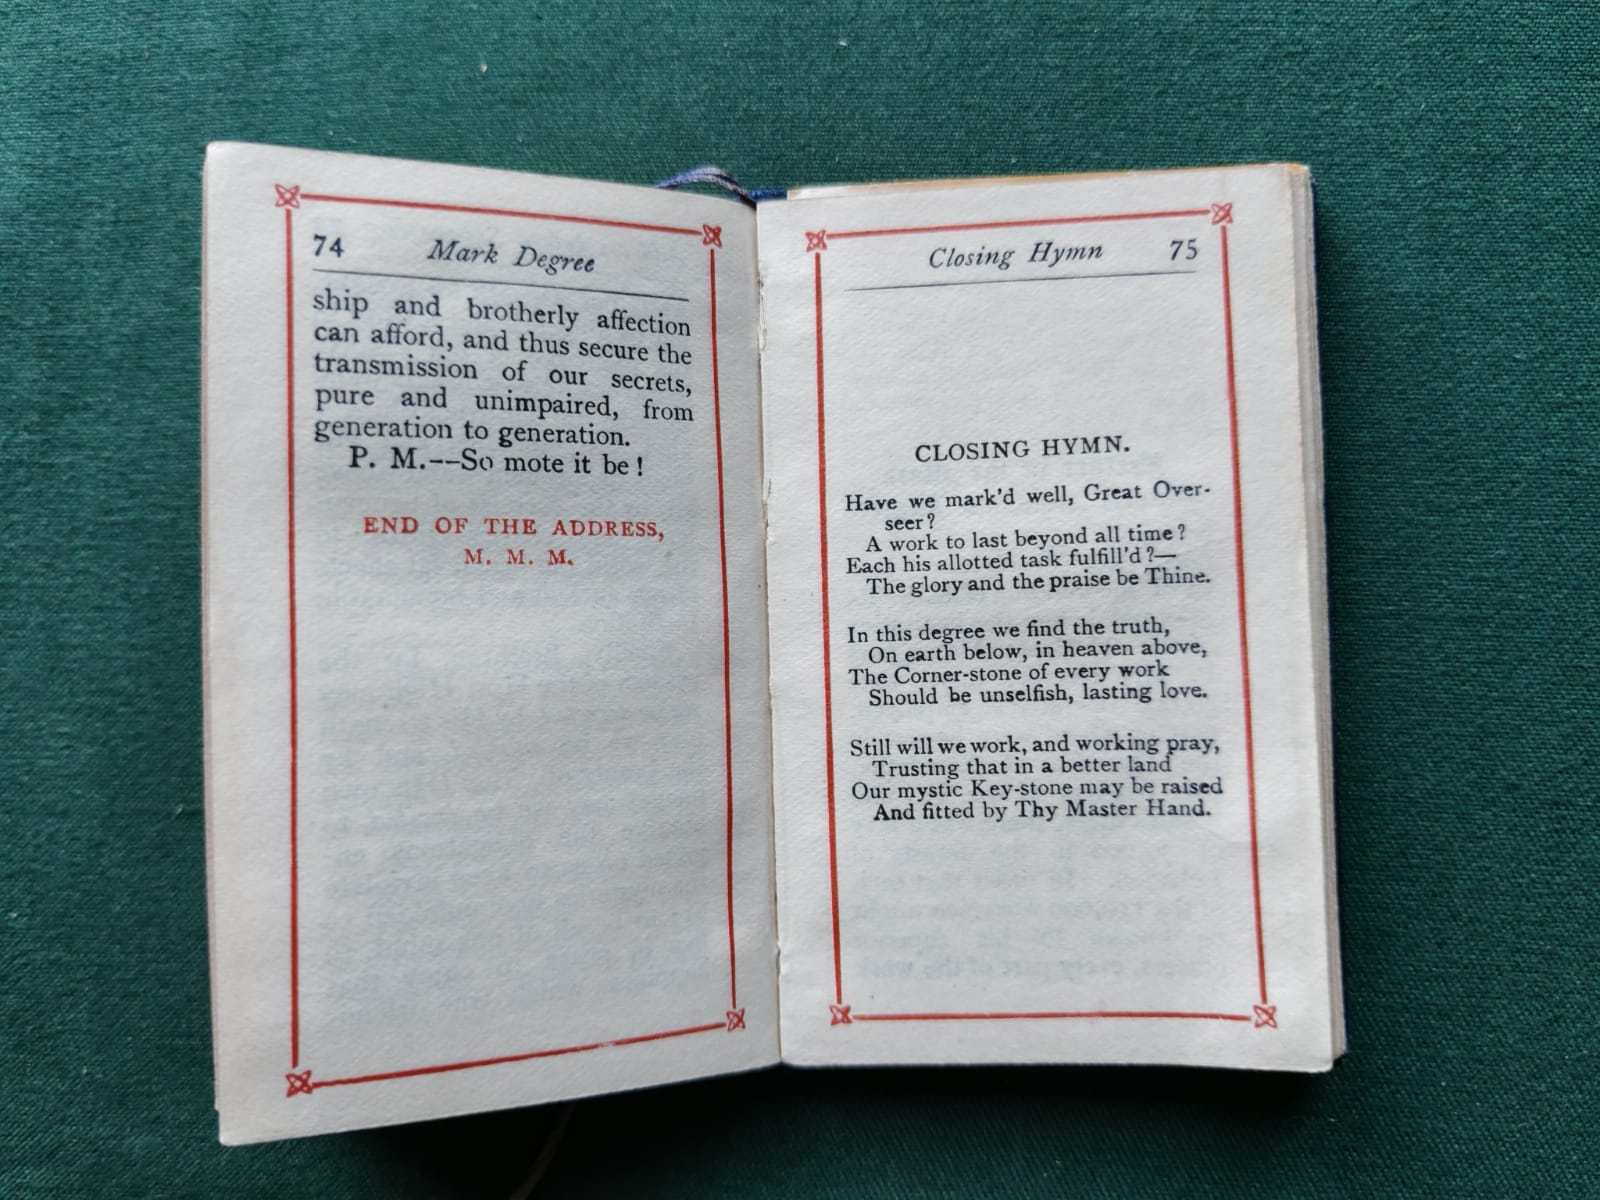 74 Mark Degree
ship and brotherly affection
can afford, and thus secure the
transmission of our secrets,
pure and unimpaired, from
generation to generation.
P. M.--So mote it be!
END OF THE ADDRESS,
M. M. M.
Closing Hymn 75
CLOSING HYMN.
Have we mark'd well, Great Over-
seer?
A work to last beyond all time?
Each his allotted task fulfill'd?—
The glory and the praise be Thine.
In this degree we find the truth,
On earth below, in heaven above,
The Corner-stone of every work
Should be unselfish, lasting love.
Still will we work, and working pray,
Trusting that in a better land
Our mystic Key-stone may be raised
And fitted by Thy Master Hand.